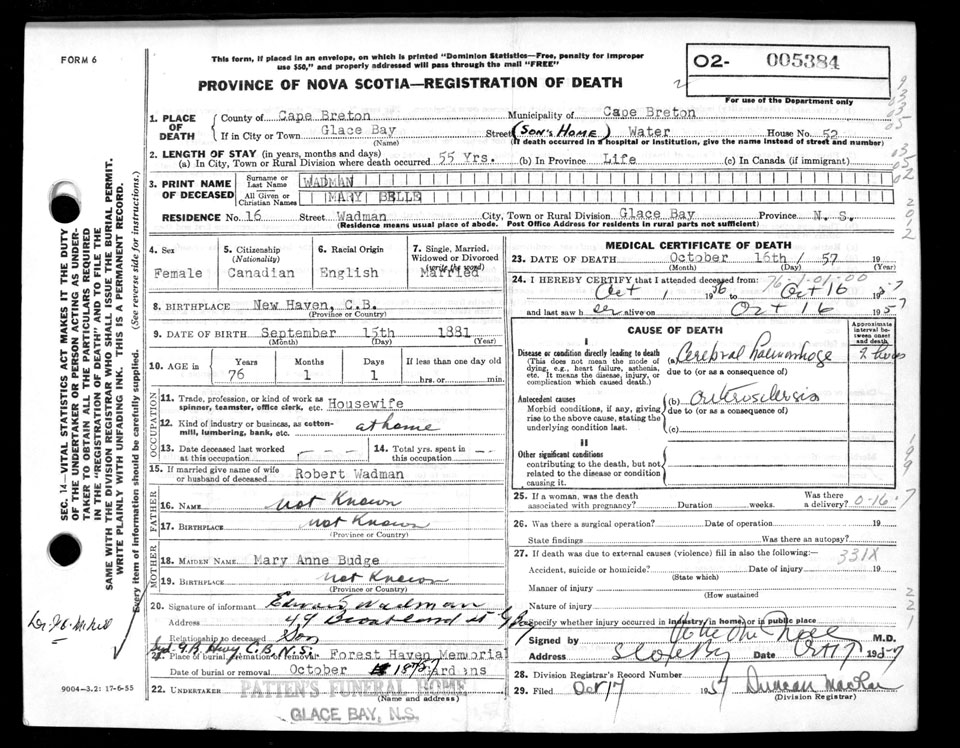 FORM 6
This form, if placed in an envelope, on which is printed "Dominion Statistics—Free, penalty for improper
use $50," and properly addressed will pass through the mail "FREE"
O2- 005384
For use of the Department only
PROVINCE OF NOVA SCOTIA—REGISTRATION OF DEATH
2
1. PLACE OF DEATH
County of Cape Breton Municipality of Cape Breton
If in City or Town Glace Bay Street (SON'S HOME) Water House No. 52
(Name) (If death occurred in a hospital or Institution, give the name instead of street and number)
2. LENGTH OF STAY (in years, months and days)
(a) In City, Town or Rural Division where death occurred 55 Yrs. (b) In Province Life (c) In Canada (if immigrant)
3. PRINT NAME OF DECEASED
Surname or Last Name WADMAN
All Given or Christian Names MARY BELLE
RESIDENCE No. 16 Street Wadman City, Town or Rural Division Glace Bay Province N. S.
(Residence means usual place of abode. Post Office Address for residents in rural parts not sufficient)
4. Sex Female
5. Citizenship (Nationality) Canadian
6. Racial Origin English
7. Single, Married, Widowed or Divorced (write the word) Married
8. BIRTHPLACE New Haven, C.B.
(Province or Country)
9. DATE OF BIRTH September 15th 1881
(Month) (Day) (Year)
10. AGE in Years 76 Months 1 Days 1 If less than one day old hrs. or min.
OCCUPATION
11. Trade, profession, or kind of work as spinner, teamster, office clerk, etc. Housewife
12. Kind of industry or business, as cotton-mill, lumbering, bank, etc. at home
13. Date deceased last worked at this occupation - - -
14. Total yrs. spent in this occupation - -
15. If married give name of wife or husband of deceased Robert Wadman
FATHER
16. NAME not Known
17. BIRTHPLACE not Known
(Province or Country)
MOTHER
18. MAIDEN NAME Mary Anne Budge
19. BIRTHPLACE not Known
(Province or Country)
20. Signature of informant Wadman
Address 49 St
Relationship to deceased Son
C.B. N.S.
21. Place of burial, cremation or removal Forest Haven Memorial
Date of burial or removal October 18 57 Gardens
22. UNDERTAKER PATTEN'S FUNERAL HOME
(Name and address)
GLACE BAY, N.S.
MEDICAL CERTIFICATE OF DEATH
23. DATE OF DEATH October 16th / 57 19
(Month) (Day) (Year)
24. I HEREBY CERTIFY that I attended deceased from:
76-1-01-00
Oct 1 1956 to Oct 16 1957
and last saw her alive on Oct 16 1957
CAUSE OF DEATH
Approximate interval between onset and death
I
Disease or condition directly leading to death (a) Cerebral haemorrhage 2
(This does not mean the mode of dying, e.g., heart failure, asthenia, etc. It means the disease, injury, or complication which caused death.)
due to (or as a consequence of)
Antecedent causes (b) arterosclerosis
Morbid conditions, if any, giving rise to the above cause, stating the underlying condition last.
due to (or as a consequence of)
(c)
II
Other significant conditions
contributing to the death, but not related to the disease or condition causing it.
25. If a woman, was the death associated with pregnancy? Duration weeks. Was there a delivery? 0-16-7
26. Was there a surgical operation? Date of operation 19
State findings Was there an autopsy?
27. If death was due to external causes (violence) fill in also the following: 331X
Accident, suicide or homicide? Date of injury 19
(State which)
Manner of injury
(How sustained
Nature of injury
Specify whether injury occurred in industry, in home, or in public
Signed by M.D.
Address Date Oct 17 1957
28. Division Registrar's Record Number
29. Filed Oct 17 1957 Duncan
(Division Registrar)
SEC. 14—VITAL STATISTICS ACT MAKES IT THE DUTY
OF THE UNDERTAKER OR PERSON ACTING AS UNDER-
TAKER TO OBTAIN ALL THE PARTICULARS REQUIRED
IN THE "REGISTRATION OF DEATH" AND TO FILE THE
SAME WITH THE DIVISION REGISTRAR WHO SHALL ISSUE THE BURIAL PERMIT.
WRITE PLAINLY WITH UNFADING INK. THIS IS A PERMANENT RECORD.
Every item of Information should be carefully supplied. (See reverse side for instructions.)
9004-3.2: 17-6-55